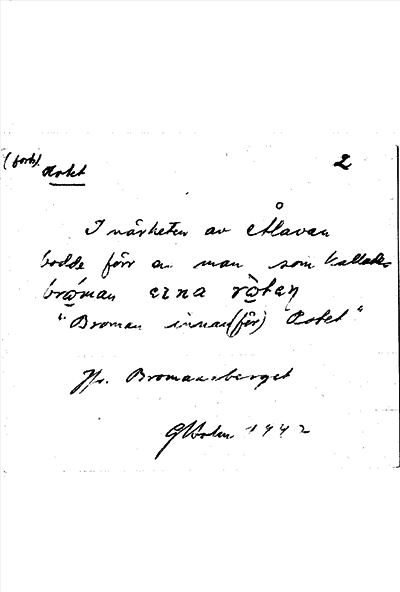 (forts). 2
Rotet
I närheten av Ålavan
bodde förr en man som kallades
broman erna roteŋ
"Broman innan(för) Rotet"
Jfr. Bromansberget
1942